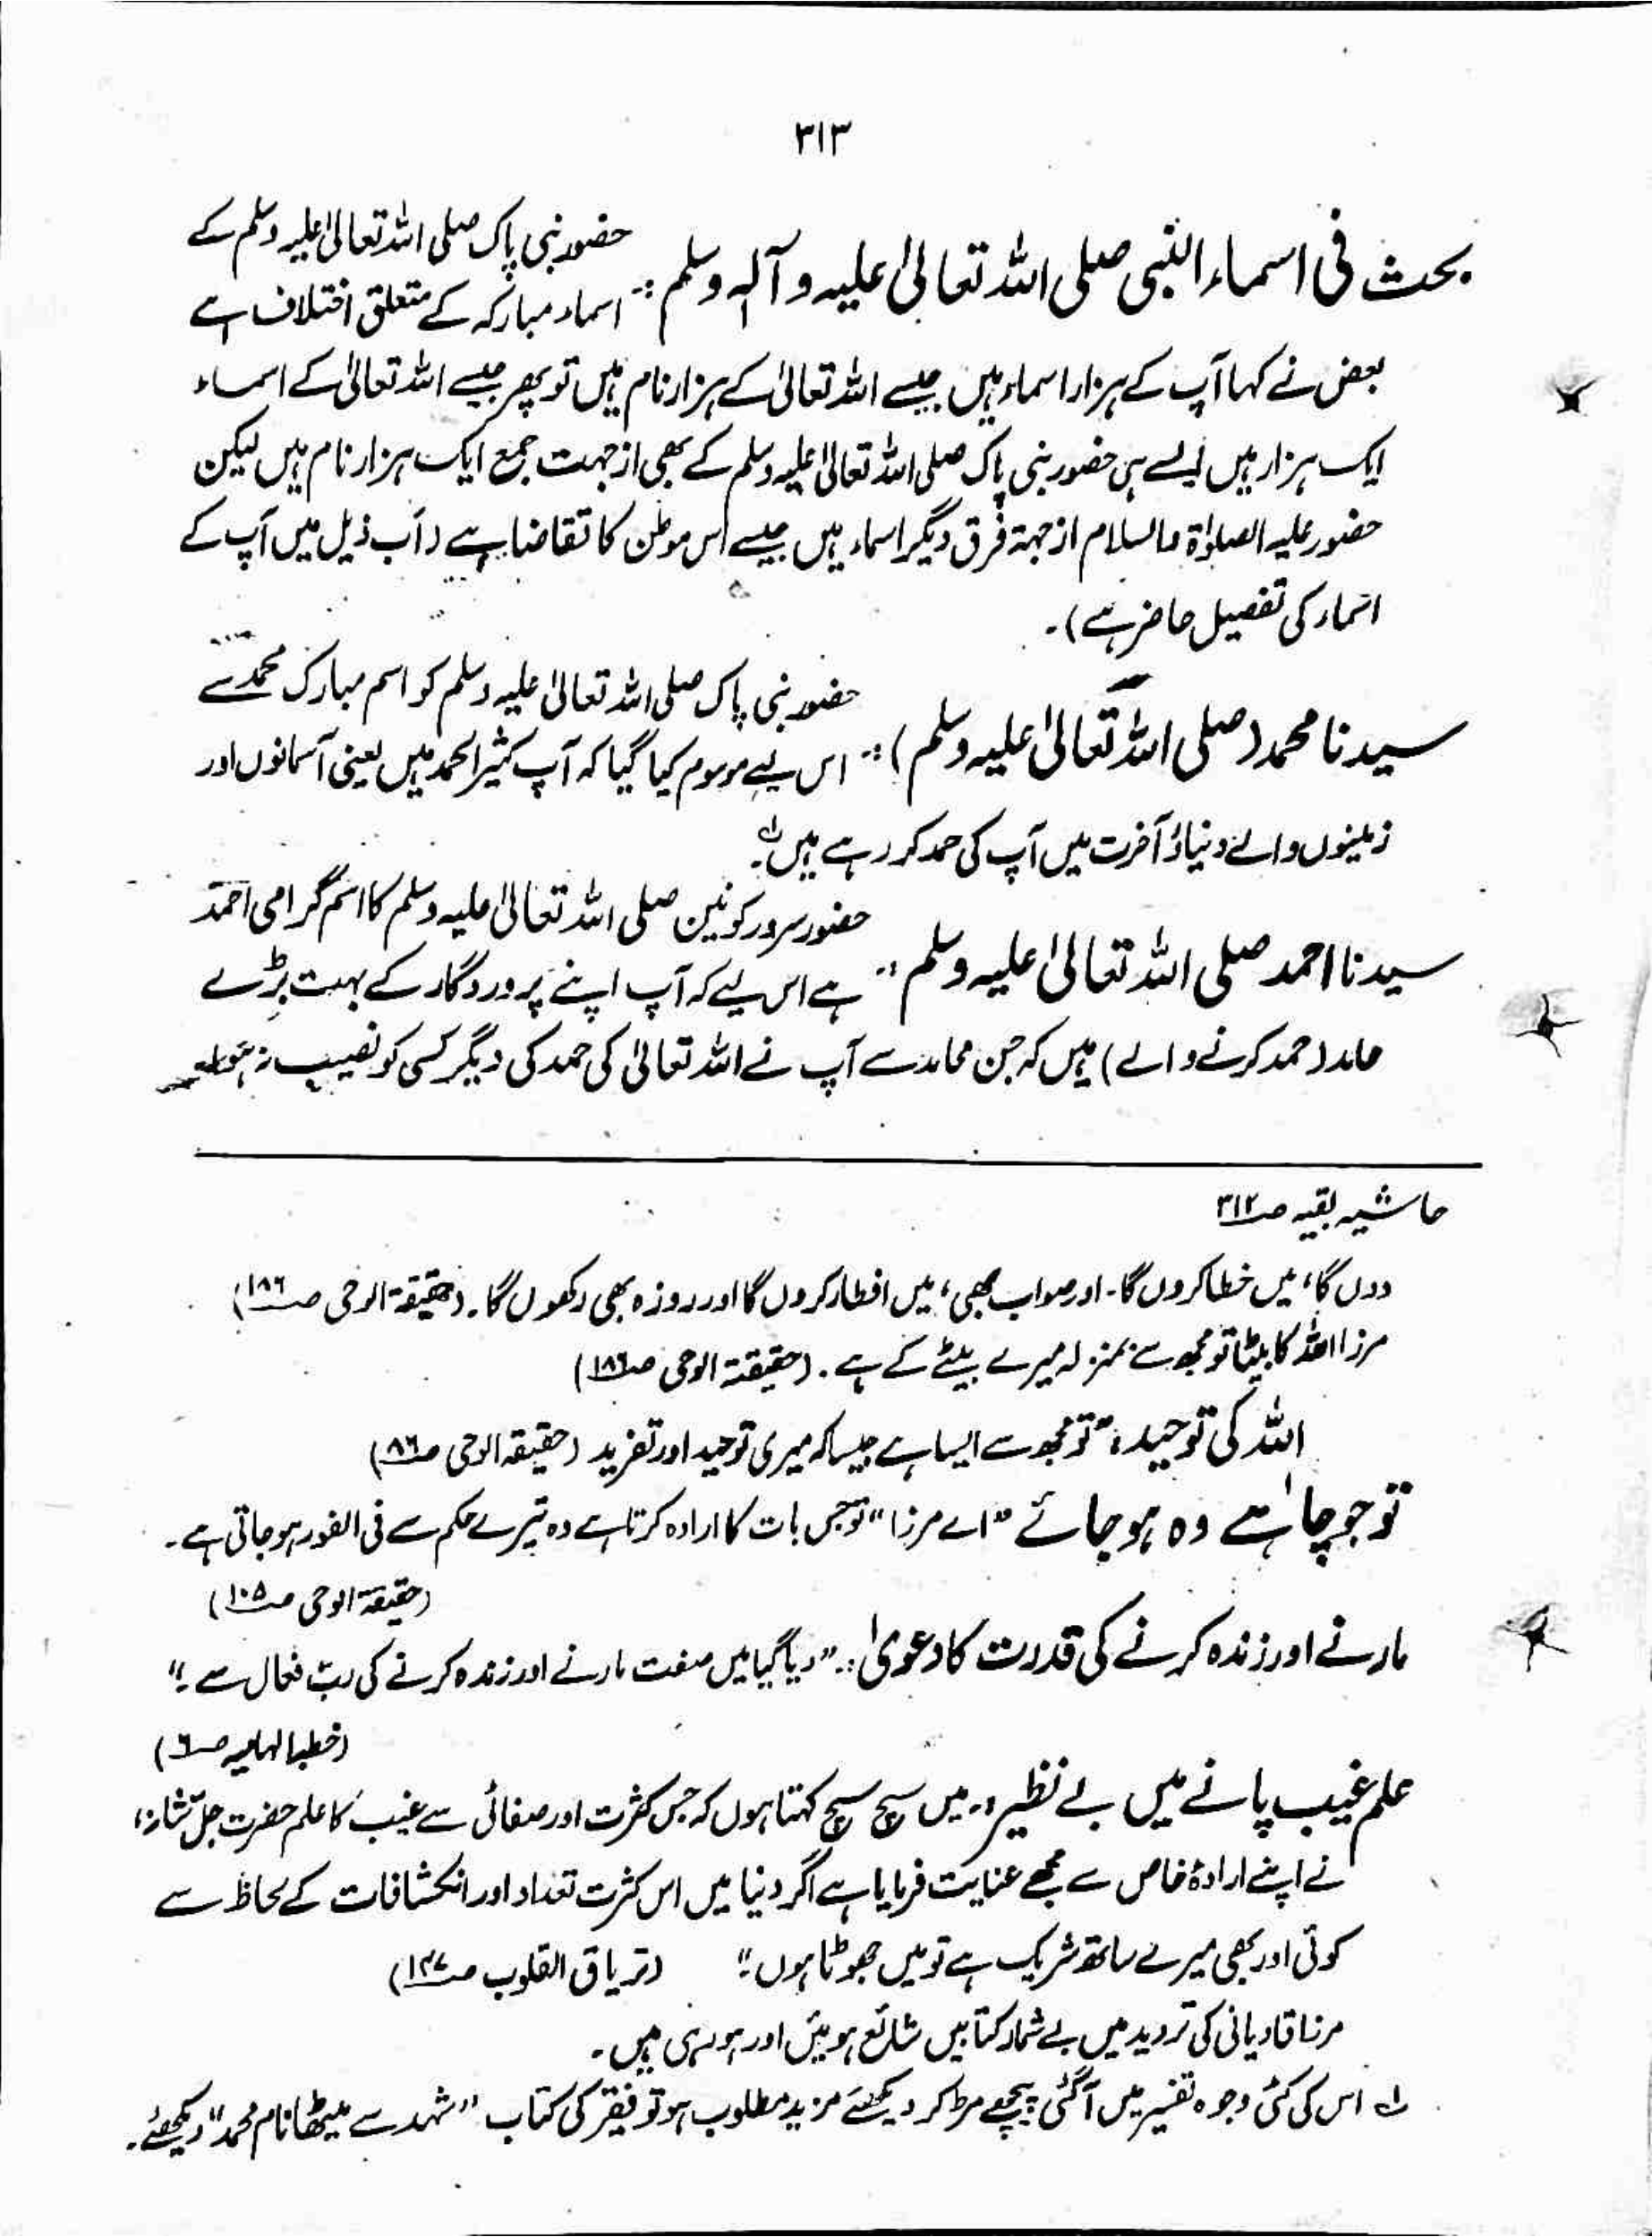 ۳۱۳
بحث فی اسماء النبی صلی اللہ تعالیٰ علیہ وآلہٖ وسلم :- حضور نبی پاک صلی اللہ تعالیٰ علیہ وسلم کے
اسماء مبارکہ کے متعلق اختلاف ہے
بعض نے کہا آپ کے ہزار اسماء ہیں جیسے اللہ تعالیٰ کے ہزار نام ہیں تو پھر جیسے اللہ تعالیٰ کے اسماء
ایک ہزار ہیں ایسے ہی حضور نبی پاک صلی اللہ تعالیٰ علیہ وسلم کے بھی از جہت جمع ایک ہزار نام ہیں لیکن
حضور علیہ الصلوٰۃ والسلام از جہۃ فرق دیگر اسماء ہیں جیسے اس موطن کا تقاضا ہے (اب ذیل میں آپ کے
اسماء کی تفصیل حاضر ہے)۔
سیدنا محمد (صلی اللہ تعالیٰ علیہ وسلم) :- حضور نبی پاک صلی اللہ تعالیٰ علیہ وسلم کو اسم مبارک محمد سے
اس لیے موسوم کیا گیا کہ آپ کثیر الحمد ہیں یعنی آسمانوں اور
زمینوں والے دنیا و آخرت میں آپ کی حمد کر رہے ہیں لہ۔
سیدنا احمد صلی اللہ تعالیٰ علیہ وسلم :- حضور سرور کونین صلی اللہ تعالیٰ علیہ وسلم کا اسم گرامی احمد
ہے اس لیے کہ آپ اپنے پروردگار کے بہت بڑے
حامد (حمد کرنے والے) ہیں کہ جن محامد سے آپ نے اللہ تعالیٰ کی حمد کی دیگر کسی کو نصیب نہ ہوا۔
حاشیہ بقیہ صـ۳۱۲
دوں گا، میں خطا کروں گا۔ اور صواب بھی، میں افطار کروں گا اور روزہ بھی رکھوں گا۔ (حقیقۃ الوحی صـ۱۸۶)
مرزا اللہ کا بیٹا تو مجھ سے بمنزلہ میرے بیٹے کے ہے۔ (حقیقۃ الوحی صـ۱۸۶)
اللہ کی توحید:" تو مجھ سے ایسا ہے جیسا کہ میری توحید اور تفرید (حقیقۃ الوحی صـ۸۶)
تو جو چاہے وہ ہو جائے "اے مرزا" تو جس بات کا ارادہ کرتا ہے وہ تیرے حکم سے فی الفور ہو جاتی ہے۔
(حقیقۃ الوحی صـ۱۰۵)
مارنے اور زندہ کرنے کی قدرت کا دعویٰ :۔ "دیا گیا میں صفت مارنے اور زندہ کرنے کی ربّ فعال سے ۔"
(خطبا الہامیہ صـ۶)
علم غیب پانے میں بے نظیر :۔ میں سچ سچ کہتا ہوں کہ جس کثرت اور صفائی سے غیب کا علم حضرت جلّ شانہٗ
نے اپنے ارادۂ خاص سے مجھے عنایت فرمایا ہے اگر دنیا میں اس کثرت تعداد اور انکشافات کے لحاظ سے
کوئی اور بھی میرے ساتھ شریک ہے تو میں جھوٹا ہوں۔" (تریاق القلوب صـ۱۳۷)
مرزا قادیانی کی تردید میں بے شمار کتابیں شائع ہوئیں اور ہو رہی ہیں۔
لہ اس کی کئی وجوہ تفسیر میں آ گئی پیچھے مڑ کر دیکھئے مزید مطلوب ہو تو فقیر کی کتاب "شہد سے میٹھا نام محمد" دیکھئے۔